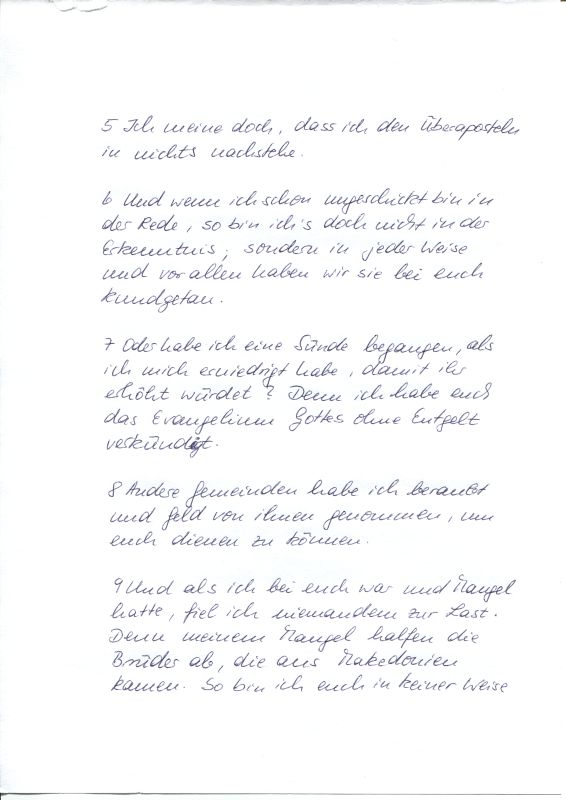 5 Ich meine doch, dass ich den Überaposteln
in nichts nachstehe.
6 Und wenn ich schon ungeschickt bin in
der Rede, so bin ich's doch nicht in der
Erkenntnis; sondern in jeder Weise
und vor allen haben wir sie bei euch
kundgetan.
7 Oder habe ich eine Sünde begangen, als
ich mich erniedrigt habe, damit ihr
erhöht würdet? Denn ich habe euch
das Evangelium Gottes ohne Entgelt
verkündigt.
8 Andere Gemeinden habe ich beraubt
und Geld von ihnen genommen, um
euch dienen zu können.
9 Und als ich bei euch war und Mangel
hatte, fiel ich niemandem zur Last.
Denn meinem Mangel halfen die
Brüder ab, die aus Makedonien
kamen. So bin ich euch in keiner Weise